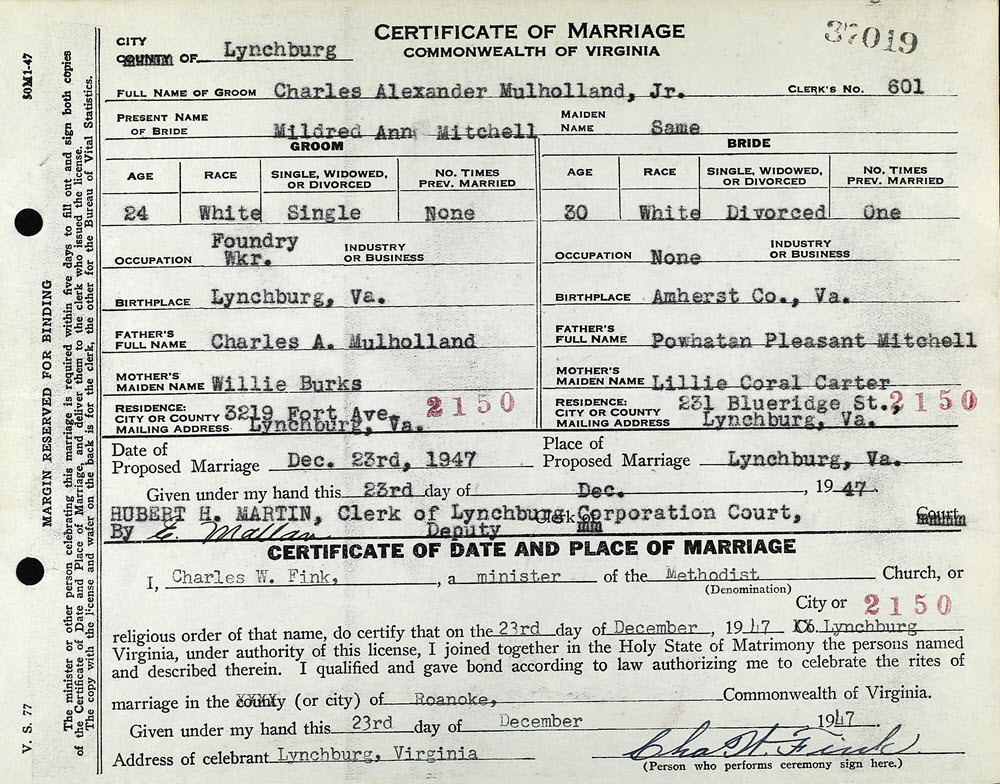 CERTIFICATE OF MARRIAGE
COMMONWEALTH OF VIRGINIA
37019
CITY
COUNTY OF Lynchburg
FULL NAME OF GROOM Charles Alexander Mulholland, Jr. CLERK'S NO. 601
PRESENT NAME OF BRIDE Mildred Ann Mitchell MAIDEN NAME Same
GROOM BRIDE
AGE RACE SINGLE, WIDOWED, OR DIVORCED NO. TIMES PREV. MARRIED AGE RACE SINGLE, WIDOWED, OR DIVORCED NO. TIMES PREV. MARRIED
24 White Single None 30 White Divorced One
OCCUPATION Foundry Wkr. INDUSTRY OR BUSINESS OCCUPATION None INDUSTRY OR BUSINESS
BIRTHPLACE Lynchburg, Va. BIRTHPLACE Amherst Co., Va.
FATHER'S FULL NAME Charles A. Mulholland FATHER'S FULL NAME Powhatan Pleasant Mitchell
MOTHER'S MAIDEN NAME Willie Burks MOTHER'S MAIDEN NAME Lillie Coral Carter
RESIDENCE: CITY OR COUNTY MAILING ADDRESS 3219 Fort Ave. Lynchburg, Va. 2150 RESIDENCE: CITY OR COUNTY MAILING ADDRESS 231 Blueridge St., Lynchburg, Va. 2150
Date of Proposed Marriage Dec. 23rd, 1947 Place of Proposed Marriage Lynchburg, Va.
Given under my hand this 23rd day of Dec., 1947.
HUBERT H. MARTIN, Clerk of Lynchburg Corporation Court,
Clerk of Court
By E. Deputy
CERTIFICATE OF DATE AND PLACE OF MARRIAGE
I, Charles W. Fink, , a minister of the Methodist Church, or
(Denomination)
City or 2150
religious order of that name, do certify that on the 23rd day of December, 1947 Lynchburg
Virginia, under authority of this license, I joined together in the Holy State of Matrimony the persons named
and described therein. I qualified and gave bond according to law authorizing me to celebrate the rites of
marriage in the county (or city) of Roanoke, Commonwealth of Virginia.
Given under my hand this 23rd day of December 1947.
Address of celebrant Lynchburg, Virginia Chas. W. Fink
(Person who performs ceremony sign here.)
50M1-47
V. S. 77
MARGIN RESERVED FOR BINDING
The minister or other person celebrating this marriage is required within five days to fill out and sign both copies
of the Certificate of Date and Place of Marriage, and deliver them to the clerk who issued the license.
The copy with the license and wafer on the back is for the clerk, the other for the Bureau of Vital Statistics.